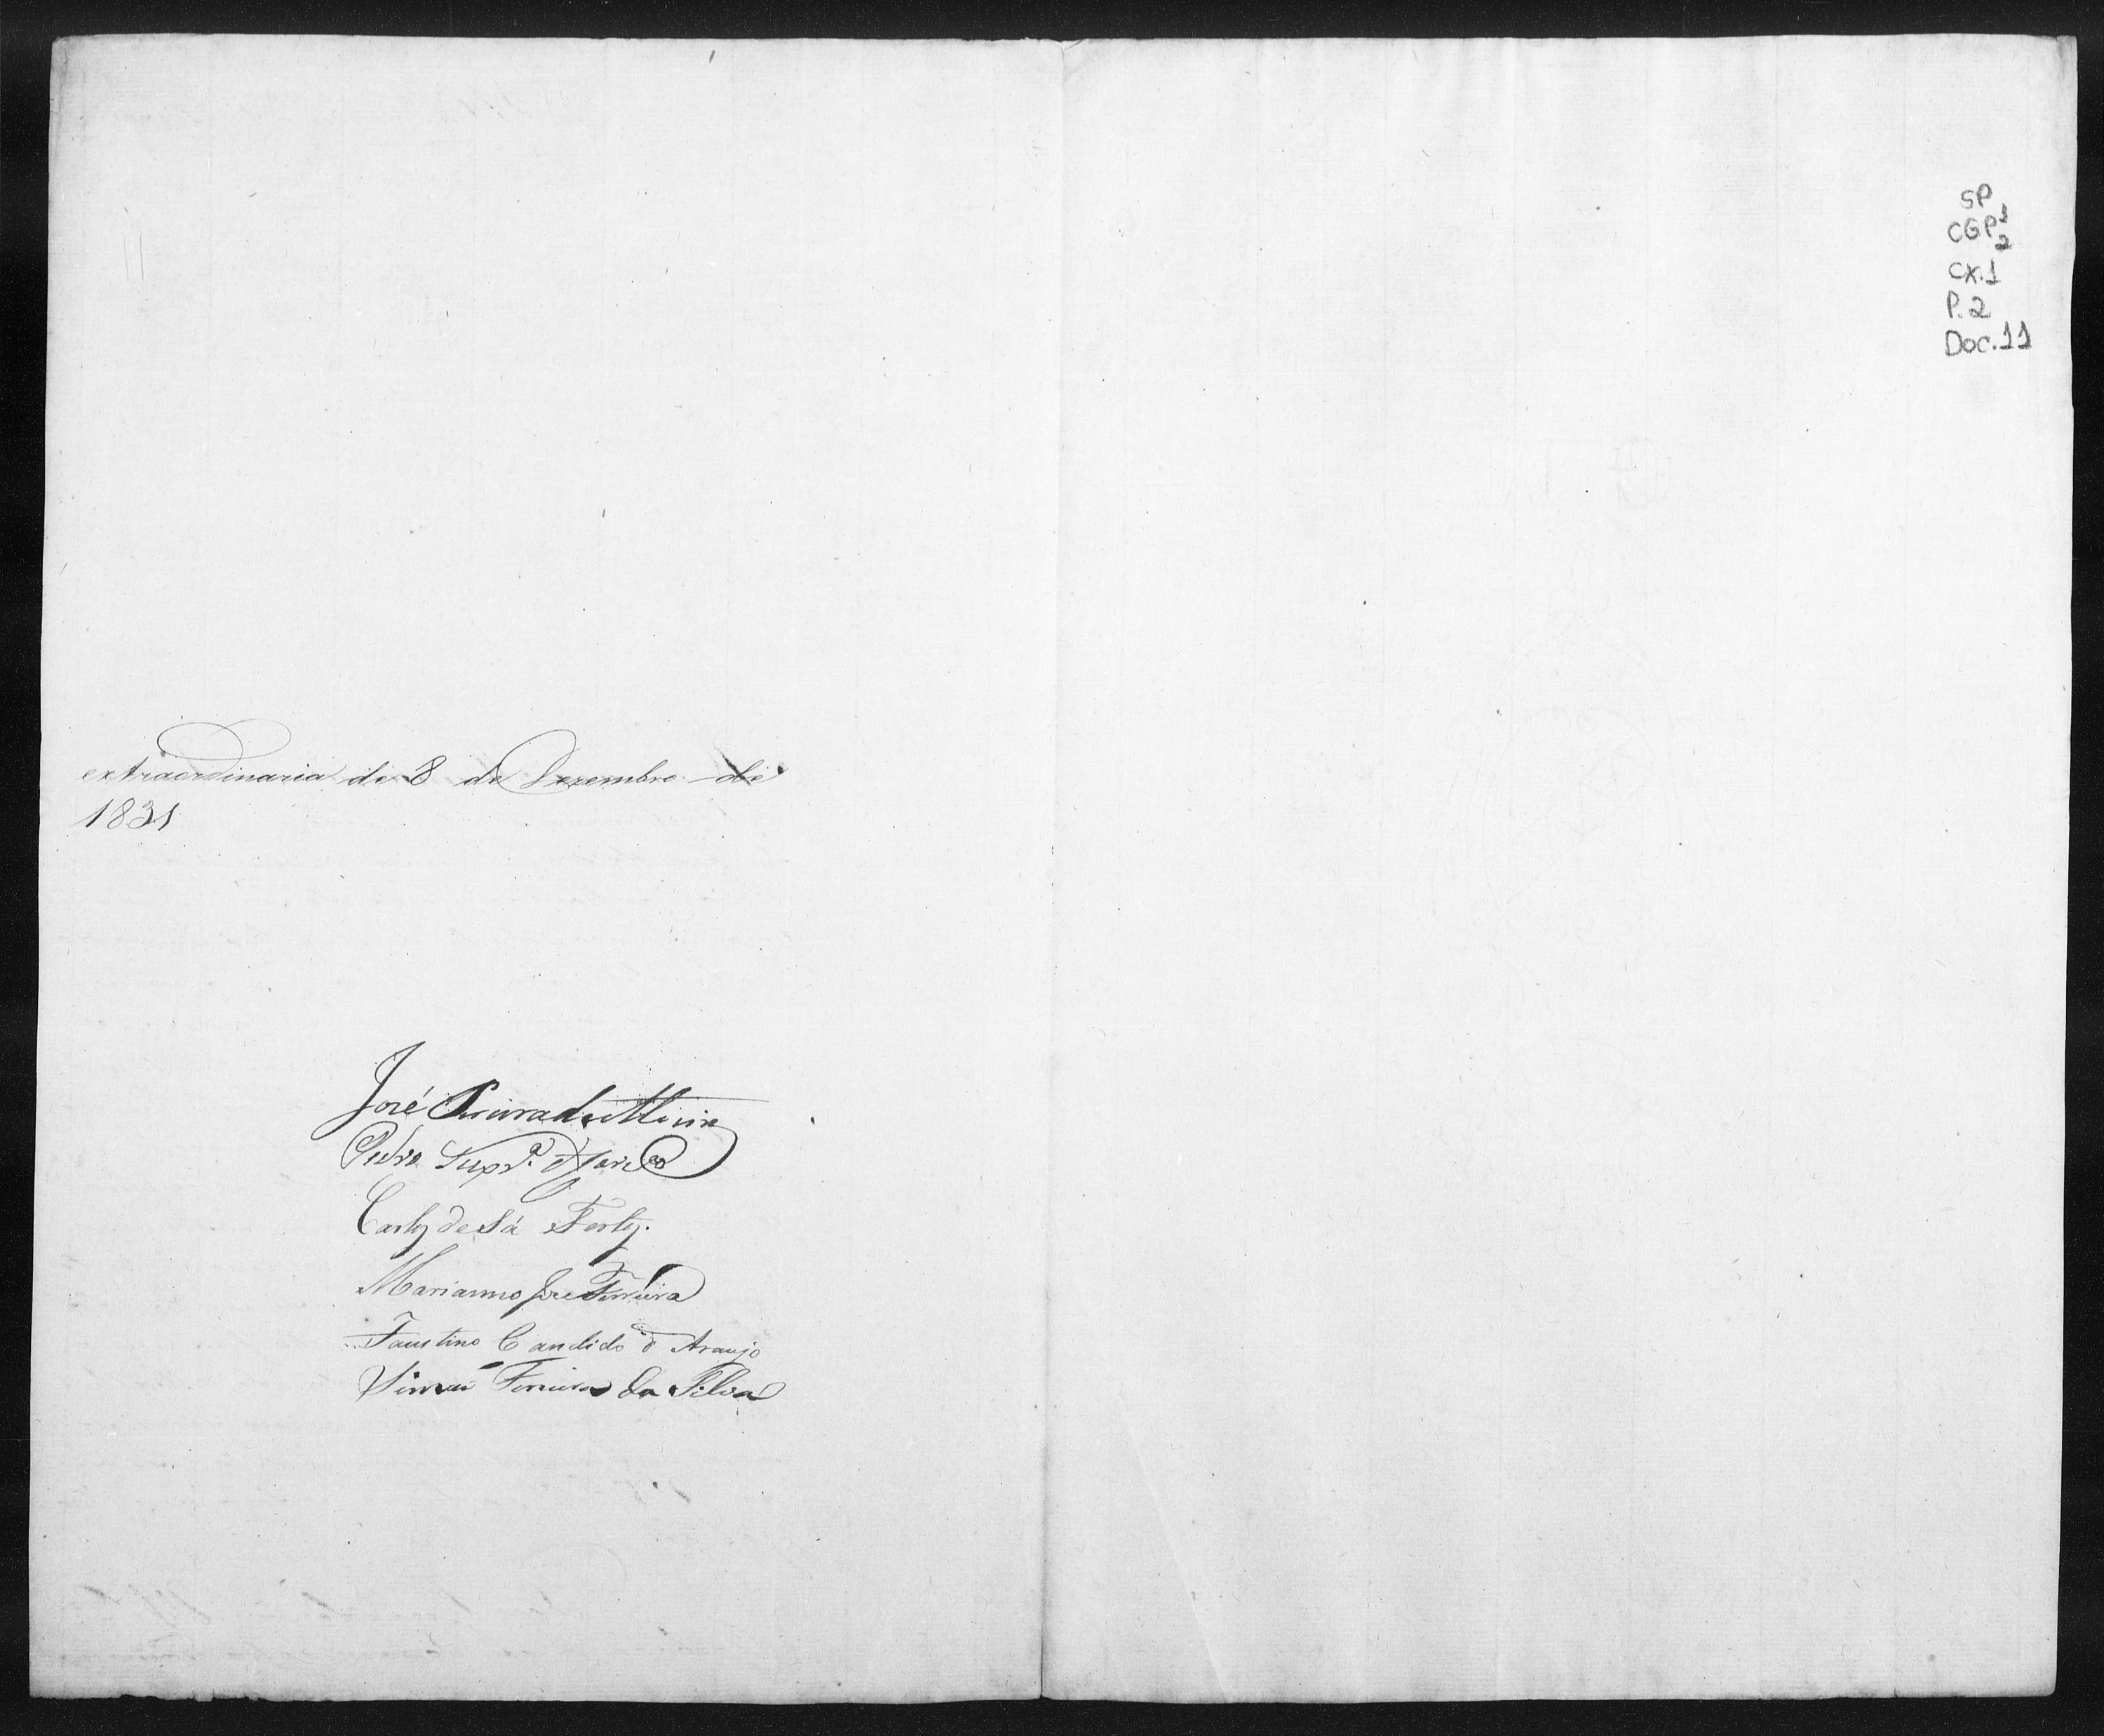 extraordinaria de 8 de Dezembro de
1831
José Pereira de
Pedro
Carlos de Sá Fortes.
Marianno José Ferreira
Faustino Candido d'Araujo
Simaõ Ferreira da Silva
SP
CGP 1
2
CX.1
P.2
Doc.11